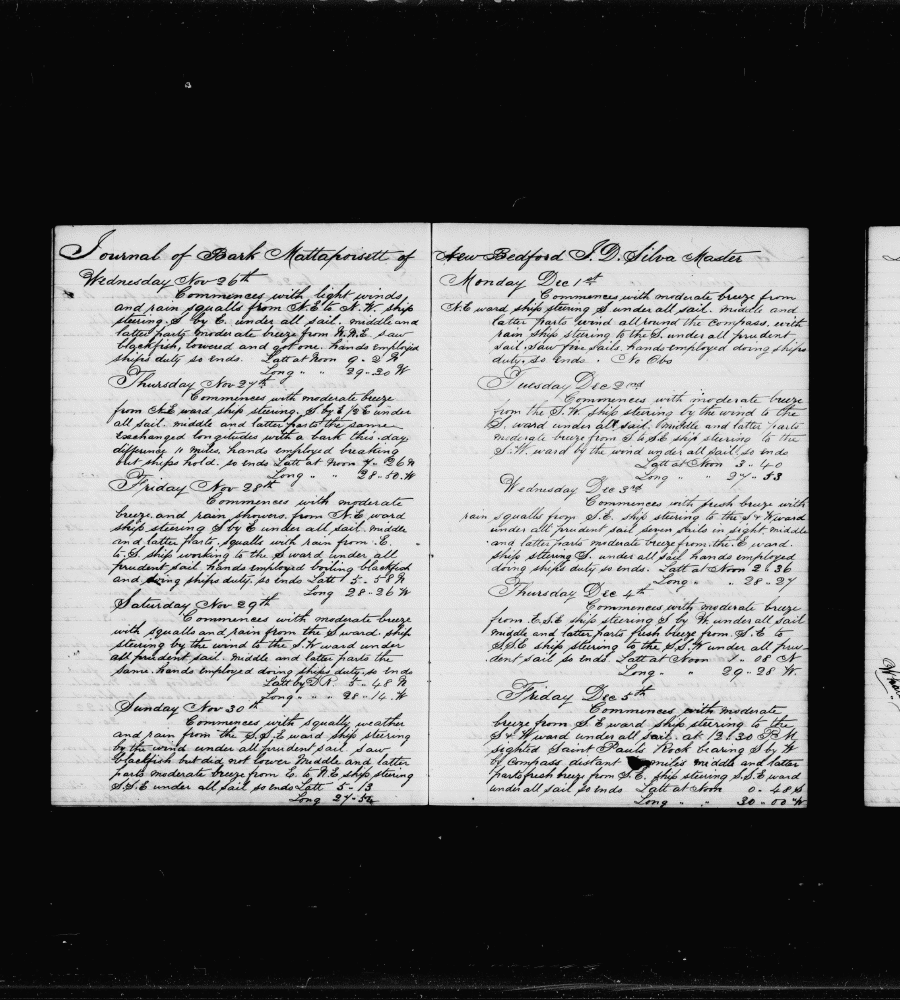 Journal of Bark Mattapoisett of
Wednesday Nov 26th
Commences with light winds,
and rain squalls from N.E to N.W. ship
steering S by E. under all sail. middle and
latter parts moderate breeze from N.N.E. saw
blackfish, lowered and got one. hands employed
ships duty so ends. Latt at Noon 9 - 2 N
Long " " 29 - 20 W
Thursday Nov 27th
Commences with moderate breeze
from N.E ward ship steering, S by E 1/2 E under
all sail. middle and latter parts the same
Exchanged longitudes with a bark this day,
differency 11 miles, hands employed breaking
out ships hold. so ends Latt at Noon 7 - 26 N
Long " " 28 - 50 W
Friday Nov 28th
Commences with moderate
breeze and rain showers, from N.E ward
ship steering S by E under all sail. middle
and latter parts, squalls with rain from E.
to S ship working to the S ward under all
prudent sail. hands employed boiling blackfish
and doing ships duty. so ends Latt 5 - 58 N
Long 28 - 26 W
Saturday Nov 29th
Commences with moderate breeze
with squalls and rain from the S ward. ship
steering by the wind to the S.W ward under
all prudent sail. middle and latter parts the
same. hands employed doing ships duty. so ends
Latt by D.R. 5 - 48 N
Long " " 28 - 14 W
Sunday Nov 30th
Commences with squally weather
and rain from the S.S.E ward ship steering
by the wind under all prudent sail. saw
blackfish but did not lower Middle and latter
parts moderate breeze from E. to N.E ship steering
S.S.E under all sail so ends Latt 5 - 13
Long 27 - 54
New Bedford J. D. Silva Master
Monday Dec 1st
Commences with moderate breeze from
N.E ward ship steering S under all sail. middle and
latter parts wind all round the compass, with
rain ship steering to the S. under all prudent
sail. saw five sails. hands employed doing ships
duty. so ends. No Obs
Tuesday Dec 2nd
Commences with moderate breeze
from the S.W. ship steering by the wind to the
S. ward under all sail. middle and latter parts
moderate breeze from S to S.E ship steering to the
S.W. ward by the wind under all sail. so ends
Latt at Noon 3 - 40
Long " " 27 - 53
Wednesday Dec 3rd
Commences with fresh breeze with
rain squalls from S.E. ship steering to the S & W ward
under all prudent sail seven sails in sight. middle
and latter parts moderate breeze from the E ward.
ship steering S. under all sail hands employed
doing ships duty. so ends. Latt at Noon 2 - 36
Long " " 28 - 27
Thursday Dec 4th
Commences with moderate breeze
from E.S.E ship steering S by W. under all sail
middle and latter parts fresh breeze from S.E to
S.S.E ship steering to the S.S.W under all pru-
dent sail so ends. Latt at Noon 1 - 08 N
Long " " 29 - 28 W.
Friday Dec 5th
Commences with moderate
breeze from S E ward ship steering to the
S & W ward under all sail. at 12.30 P.M.
sighted Saint Pauls Rock bearing S by W
by Compass distant miles middle and latter
parts fresh breeze from S.E. ship steering S.S.E ward
under all sail so ends Latt at Noon 0 - 48 S
Long " " 30 - 00 W